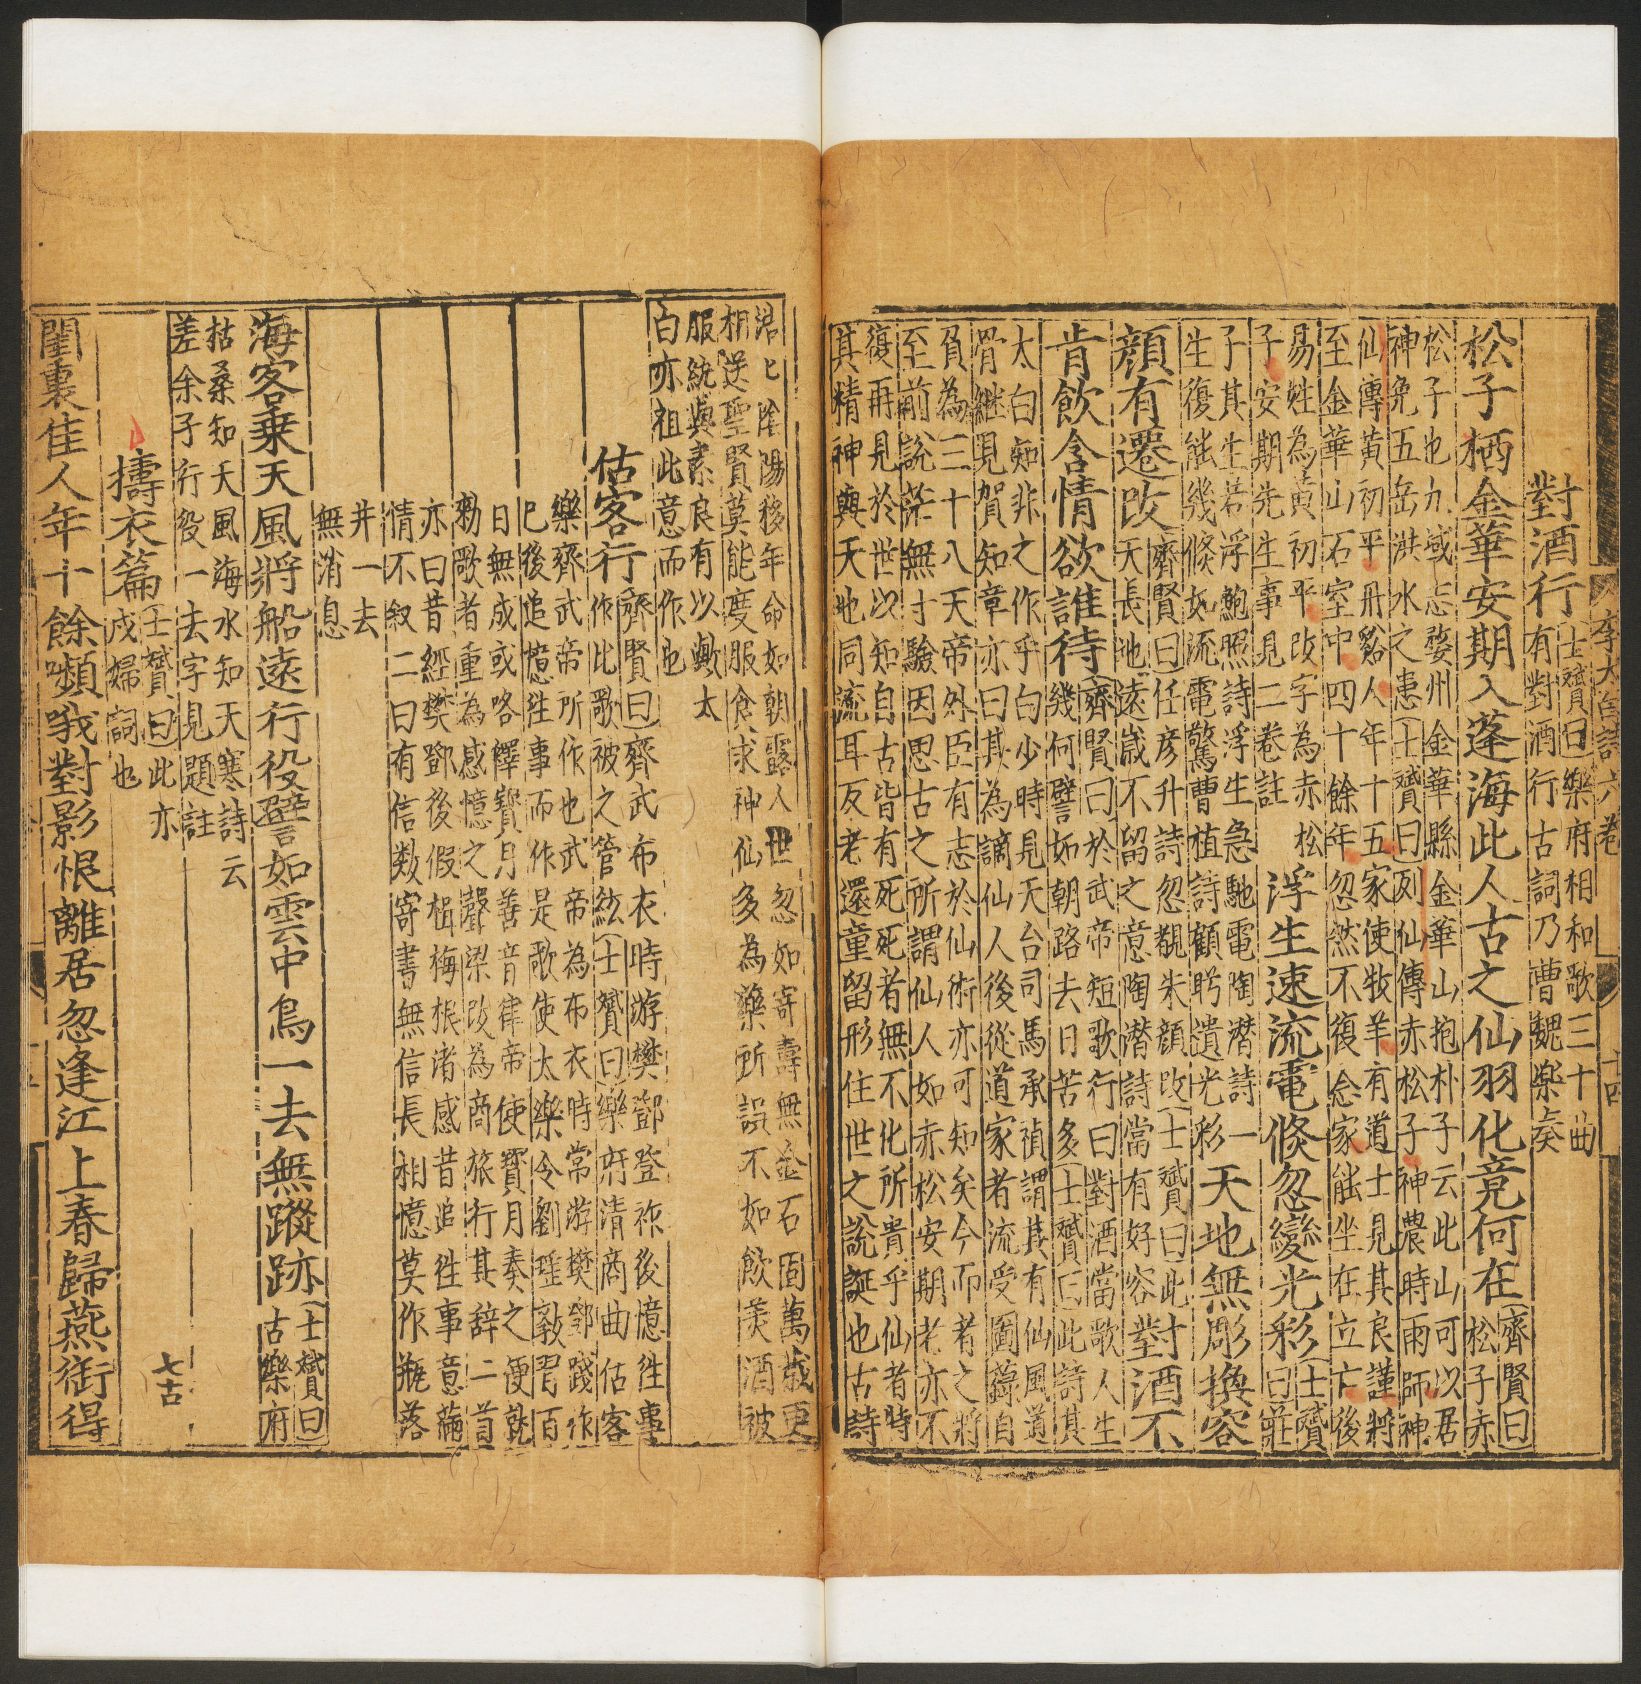 李太白詩六卷
十四
對酒行
士贇曰樂府相和歌三十曲
有對酒行古詞乃曹魏樂奏
松子栖金華安期入蓬海此人古之仙羽化竟何在
齊賢曰
松子赤
松子也九域志婺州金華縣金華山抱朴子云此山可以居
神免五岳洪水之患士贇曰列仙傳赤松子神農時雨師神
仙傳黃初平丹谿人年十五家使牧羊有道士見其良謹將
至金華山石室中四十餘年忽然不復念家能坐在立亡後
易姓為黃初平改字為赤松
子安期先生事見二卷註
浮生速流電倏忽變光彩
士贇
曰莊
子其生若浮鮑照詩浮生急馳電陶潛詩一
生復能幾倏如流電驚曹植詩顧眄遺光彩
天地無彫換容
顏有遷改
齊賢曰任彥升詩忽覩朱顏改士贇曰此
天長地遠歲不留之意陶潛詩當有好容
對酒不
肯飲含情欲誰待
齊賢曰於武帝短歌行曰對酒當歌人生
幾何譬如朝路去日苦多士贇曰此詩其
太白知非之作乎白少時見天台司馬承禎謂其有仙風道
骨繼見賀知章亦曰其為謫仙人後從道家者流受圖籙自
負為三十八天帝外臣有志於仙術亦可知矣今而者之將
至前說茫無寸驗因思古之所謂仙人如赤松安期老亦不
復再見於世以知自古皆有死死者無不化所貴乎仙者時
其精神與天地同流耳反老還童留形住世之說誕也古詩
浩匕陰陽移年命如朝露人世忽如寄壽無金石固萬歲更
相送聖賢莫能度服食求神仙多為藥所誤不如飲美酒被
服紈與素良有以歟太
白亦祖此意而作也
估客行
齊賢曰齊武布衣時游樊鄧登祚後憶往事
作此歌被之管絃士贇曰樂府清商曲估客
樂齊武帝所作也武帝為布衣時常游樊鄧踐作
巳後追憶往事而作是歌使太樂令劉瑶敎習百
日無成或啓釋寶月善音律帝使寶月奏之便就
勑歌者重為感憶之聲梁改為商旅行其辞二首
亦曰昔經樊鄧後假楫梅根渚感昔追往事意蒲
情不叙二曰有信数寄書無信長相憶莫作瓶落
井一去
無消息
海客乗天風將船遠行役譬如雲中鳥一去無蹤跡
士贇曰
古樂府
枯桑知天風海水知天寒詩云
差余子行役一去字見題註
擣衣篇
士贇曰此亦
戍婦詞也
七古
閨裏佳人年十餘嚬蛾對影恨離居忽逢江上春歸燕銜得